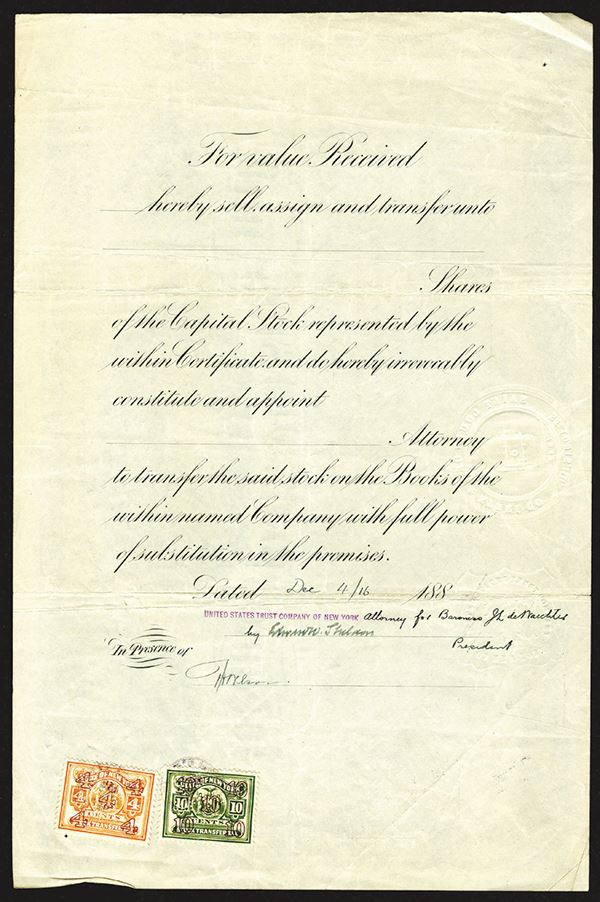 For value Received
hereby sell, assign and transfer unto
Shares
of the Capital Stock represented by the
within Certificate and do hereby irrevocably
constitute and appoint
Attorney
to transfer the said stock on the Books of the
within named Company with full power
of substitution in the premises.
Dated Dec 4/16 188
UNITED STATES TRUST COMPANY OF NEW YORK Attorney for Baroness
by President
In Presence of
4 4 4 4 4
CENTS
TRANSFER
NEW YORK
10 10 10
CENTS
TRANSFER TAX